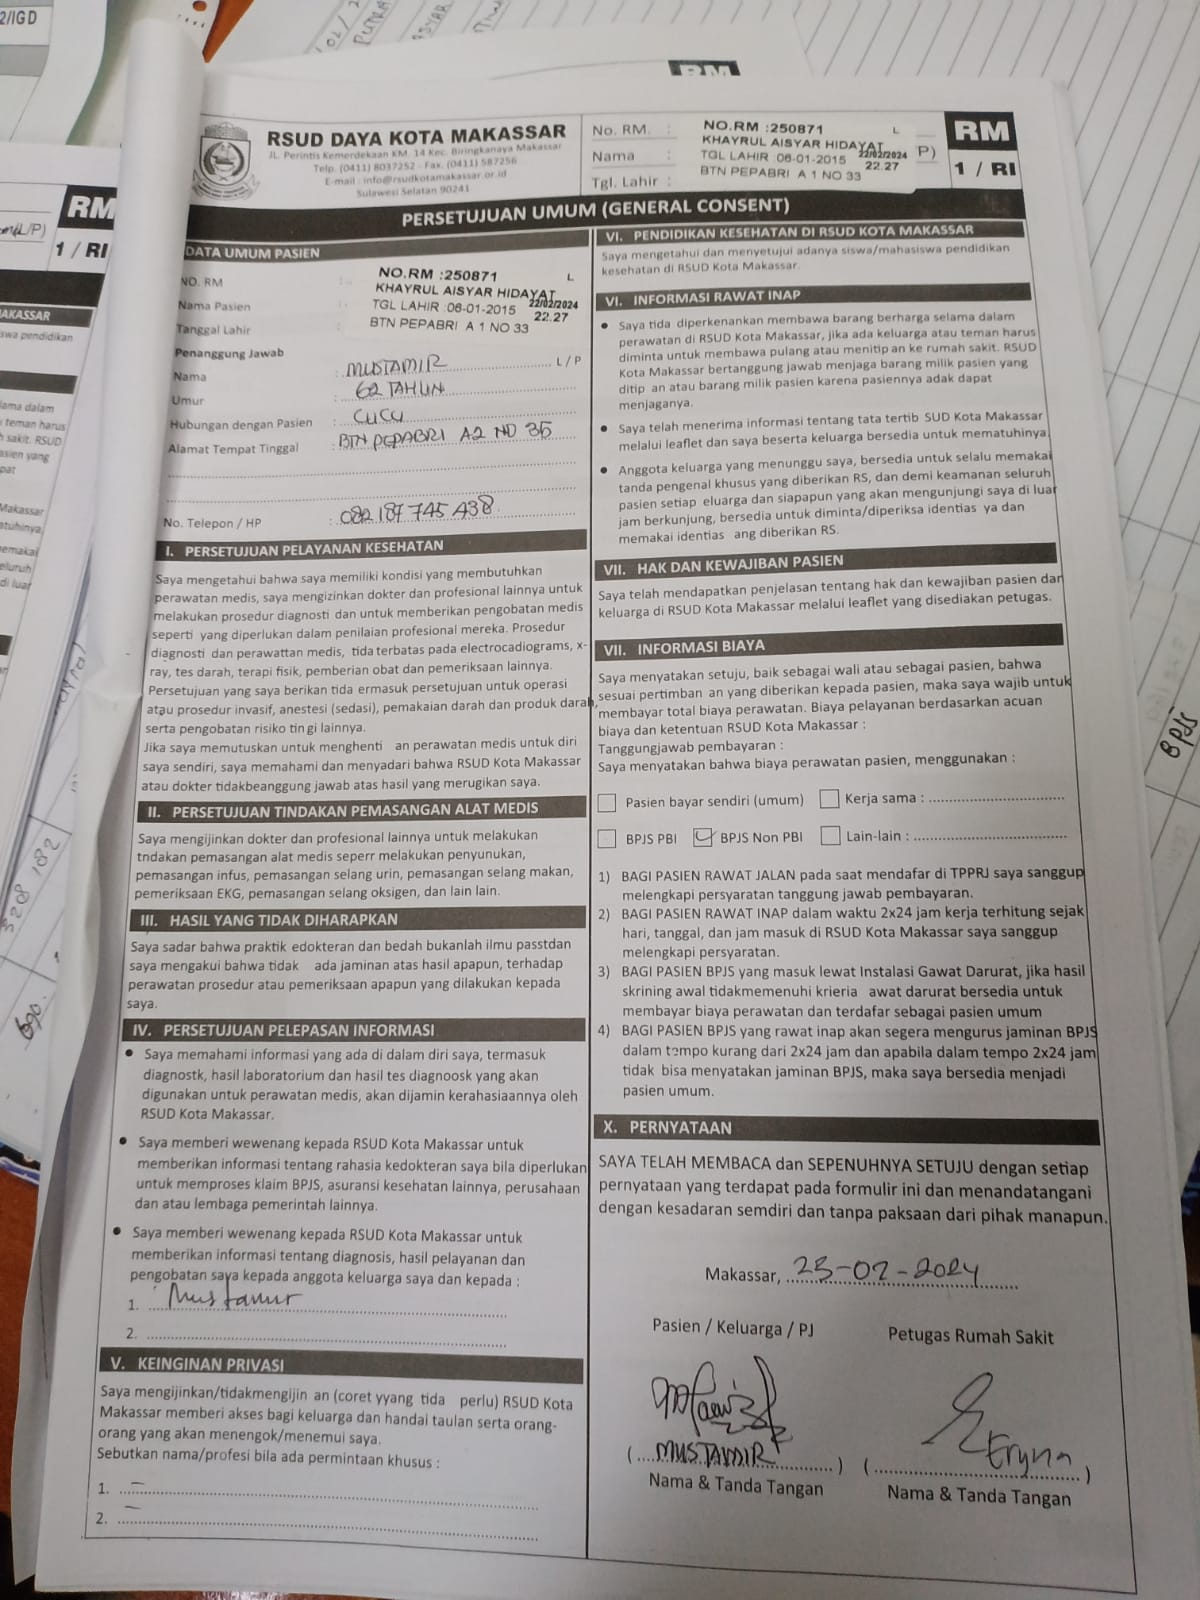 2/IGD
RM
RM
1 / RI
RSUD DAYA KOTA MAKASSAR
JL. Perintis Kemerdekaan KM. 14 Kec. Biringkanaya Makassar
Telp. (0411) 8037252 - Fax. (0411) 587256
E-mail : info@rsudkotamakassar.or.id
Sulawesi Selatan 90241
No. RM. :
Nama :
Tgl. Lahir :
NO.RM :250871 L
KHAYRUL AISYAR HIDAYAT
TGL LAHIR :06-01-2015 22/02/2024
22.27
BTN PEPABRI A 1 NO 33
P)
RM
1 / RI
PERSETUJUAN UMUM (GENERAL CONSENT)
DATA UMUM PASIEN
NO. RM :
Nama Pasien :
Tanggal Lahir :
NO.RM :250871 L
KHAYRUL AISYAR HIDAYAT
TGL LAHIR :06-01-2015 22/02/2024
22.27
BTN PEPABRI A 1 NO 33
Penanggung Jawab
Nama : MUSTAMIR L / P
Umur : 62 TAHUN
Hubungan dengan Pasien : CUCU
Alamat Tempat Tinggal : BTN PEPABRI A2 NO 35
No. Telepon / HP : 082 187 745 438
I. PERSETUJUAN PELAYANAN KESEHATAN
Saya mengetahui bahwa saya memiliki kondisi yang membutuhkan
perawatan medis, saya mengizinkan dokter dan profesional lainnya untuk
melakukan prosedur diagnosti dan untuk memberikan pengobatan medis
seperti yang diperlukan dalam penilaian profesional mereka. Prosedur
diagnosti dan perawattan medis, tida terbatas pada electrocadiograms, x-
ray, tes darah, terapi fisik, pemberian obat dan pemeriksaan lainnya.
Persetujuan yang saya berikan tida ermasuk persetujuan untuk operasi
atau prosedur invasif, anestesi (sedasi), pemakaian darah dan produk darah,
serta pengobatan risiko tin gi lainnya.
Jika saya memutuskan untuk menghenti an perawatan medis untuk diri
saya sendiri, saya memahami dan menyadari bahwa RSUD Kota Makassar
atau dokter tidakbeanggung jawab atas hasil yang merugikan saya.
II. PERSETUJUAN TINDAKAN PEMASANGAN ALAT MEDIS
Saya mengijinkan dokter dan profesional lainnya untuk melakukan
tndakan pemasangan alat medis seperr melakukan penyunukan,
pemasangan infus, pemasangan selang urin, pemasangan selang makan,
pemeriksaan EKG, pemasangan selang oksigen, dan lain lain.
III. HASIL YANG TIDAK DIHARAPKAN
Saya sadar bahwa praktik edokteran dan bedah bukanlah ilmu passtdan
saya mengakui bahwa tidak ada jaminan atas hasil apapun, terhadap
perawatan prosedur atau pemeriksaan apapun yang dilakukan kepada
saya.
IV. PERSETUJUAN PELEPASAN INFORMASI
• Saya memahami informasi yang ada di dalam diri saya, termasuk
diagnostk, hasil laboratorium dan hasil tes diagnoosk yang akan
digunakan untuk perawatan medis, akan dijamin kerahasiaannya oleh
RSUD Kota Makassar.
• Saya memberi wewenang kepada RSUD Kota Makassar untuk
memberikan informasi tentang rahasia kedokteran saya bila diperlukan
untuk memproses klaim BPJS, asuransi kesehatan lainnya, perusahaan
dan atau lembaga pemerintah lainnya.
• Saya memberi wewenang kepada RSUD Kota Makassar untuk
memberikan informasi tentang diagnosis, hasil pelayanan dan
pengobatan saya kepada anggota keluarga saya dan kepada :
1. Mustamir
2.
V. KEINGINAN PRIVASI
Saya mengijinkan/tidakmengijin an (coret yyang tida perlu) RSUD Kota
Makassar memberi akses bagi keluarga dan handai taulan serta orang-
orang yang akan menengok/menemui saya.
Sebutkan nama/profesi bila ada permintaan khusus :
1. –
2. –
VI. PENDIDIKAN KESEHATAN DI RSUD KOTA MAKASSAR
Saya mengetahui dan menyetujui adanya siswa/mahasiswa pendidikan
kesehatan di RSUD Kota Makassar.
VI. INFORMASI RAWAT INAP
• Saya tida diperkenankan membawa barang berharga selama dalam
perawatan di RSUD Kota Makassar, jika ada keluarga atau teman harus
diminta untuk membawa pulang atau menitip an ke rumah sakit. RSUD
Kota Makassar bertanggung jawab menjaga barang milik pasien yang
ditip an atau barang milik pasien karena pasiennya adak dapat
menjaganya.
• Saya telah menerima informasi tentang tata tertib SUD Kota Makassar
melalui leaflet dan saya beserta keluarga bersedia untuk mematuhinya
• Anggota keluarga yang menunggu saya, bersedia untuk selalu memakai
tanda pengenal khusus yang diberikan RS, dan demi keamanan seluruh
pasien setiap eluarga dan siapapun yang akan mengunjungi saya di luar
jam berkunjung, bersedia untuk diminta/diperiksa identias ya dan
memakai identias ang diberikan RS.
VII. HAK DAN KEWAJIBAN PASIEN
Saya telah mendapatkan penjelasan tentang hak dan kewajiban pasien dan
keluarga di RSUD Kota Makassar melalui leaflet yang disediakan petugas.
VII. INFORMASI BIAYA
Saya menyatakan setuju, baik sebagai wali atau sebagai pasien, bahwa
sesuai pertimban an yang diberikan kepada pasien, maka saya wajib untuk
membayar total biaya perawatan. Biaya pelayanan berdasarkan acuan
biaya dan ketentuan RSUD Kota Makassar :
Tanggungjawab pembayaran :
Saya menyatakan bahwa biaya perawatan pasien, menggunakan :
Pasien bayar sendiri (umum) Kerja sama :
BPJS PBI BPJS Non PBI Lain-lain :
1) BAGI PASIEN RAWAT JALAN pada saat mendafar di TPPRJ saya sanggup
melengkapi persyaratan tanggung jawab pembayaran.
2) BAGI PASIEN RAWAT INAP dalam waktu 2x24 jam kerja terhitung sejak
hari, tanggal, dan jam masuk di RSUD Kota Makassar saya sanggup
melengkapi persyaratan.
3) BAGI PASIEN BPJS yang masuk lewat Instalasi Gawat Darurat, jika hasil
skrining awal tidakmemenuhi krieria awat darurat bersedia untuk
membayar biaya perawatan dan terdafar sebagai pasien umum
4) BAGI PASIEN BPJS yang rawat inap akan segera mengurus jaminan BPJS
dalam tempo kurang dari 2x24 jam dan apabila dalam tempo 2x24 jam
tidak bisa menyatakan jaminan BPJS, maka saya bersedia menjadi
pasien umum.
X. PERNYATAAN
SAYA TELAH MEMBACA dan SEPENUHNYA SETUJU dengan setiap
pernyataan yang terdapat pada formulir ini dan menandatangani
dengan kesadaran semdiri dan tanpa paksaan dari pihak manapun.
Makassar, 23-02-2024
Pasien / Keluarga / PJ
Petugas Rumah Sakit
( MUSTAMIR )
( Eryna )
Nama & Tanda Tangan
Nama & Tanda Tangan
BPJS